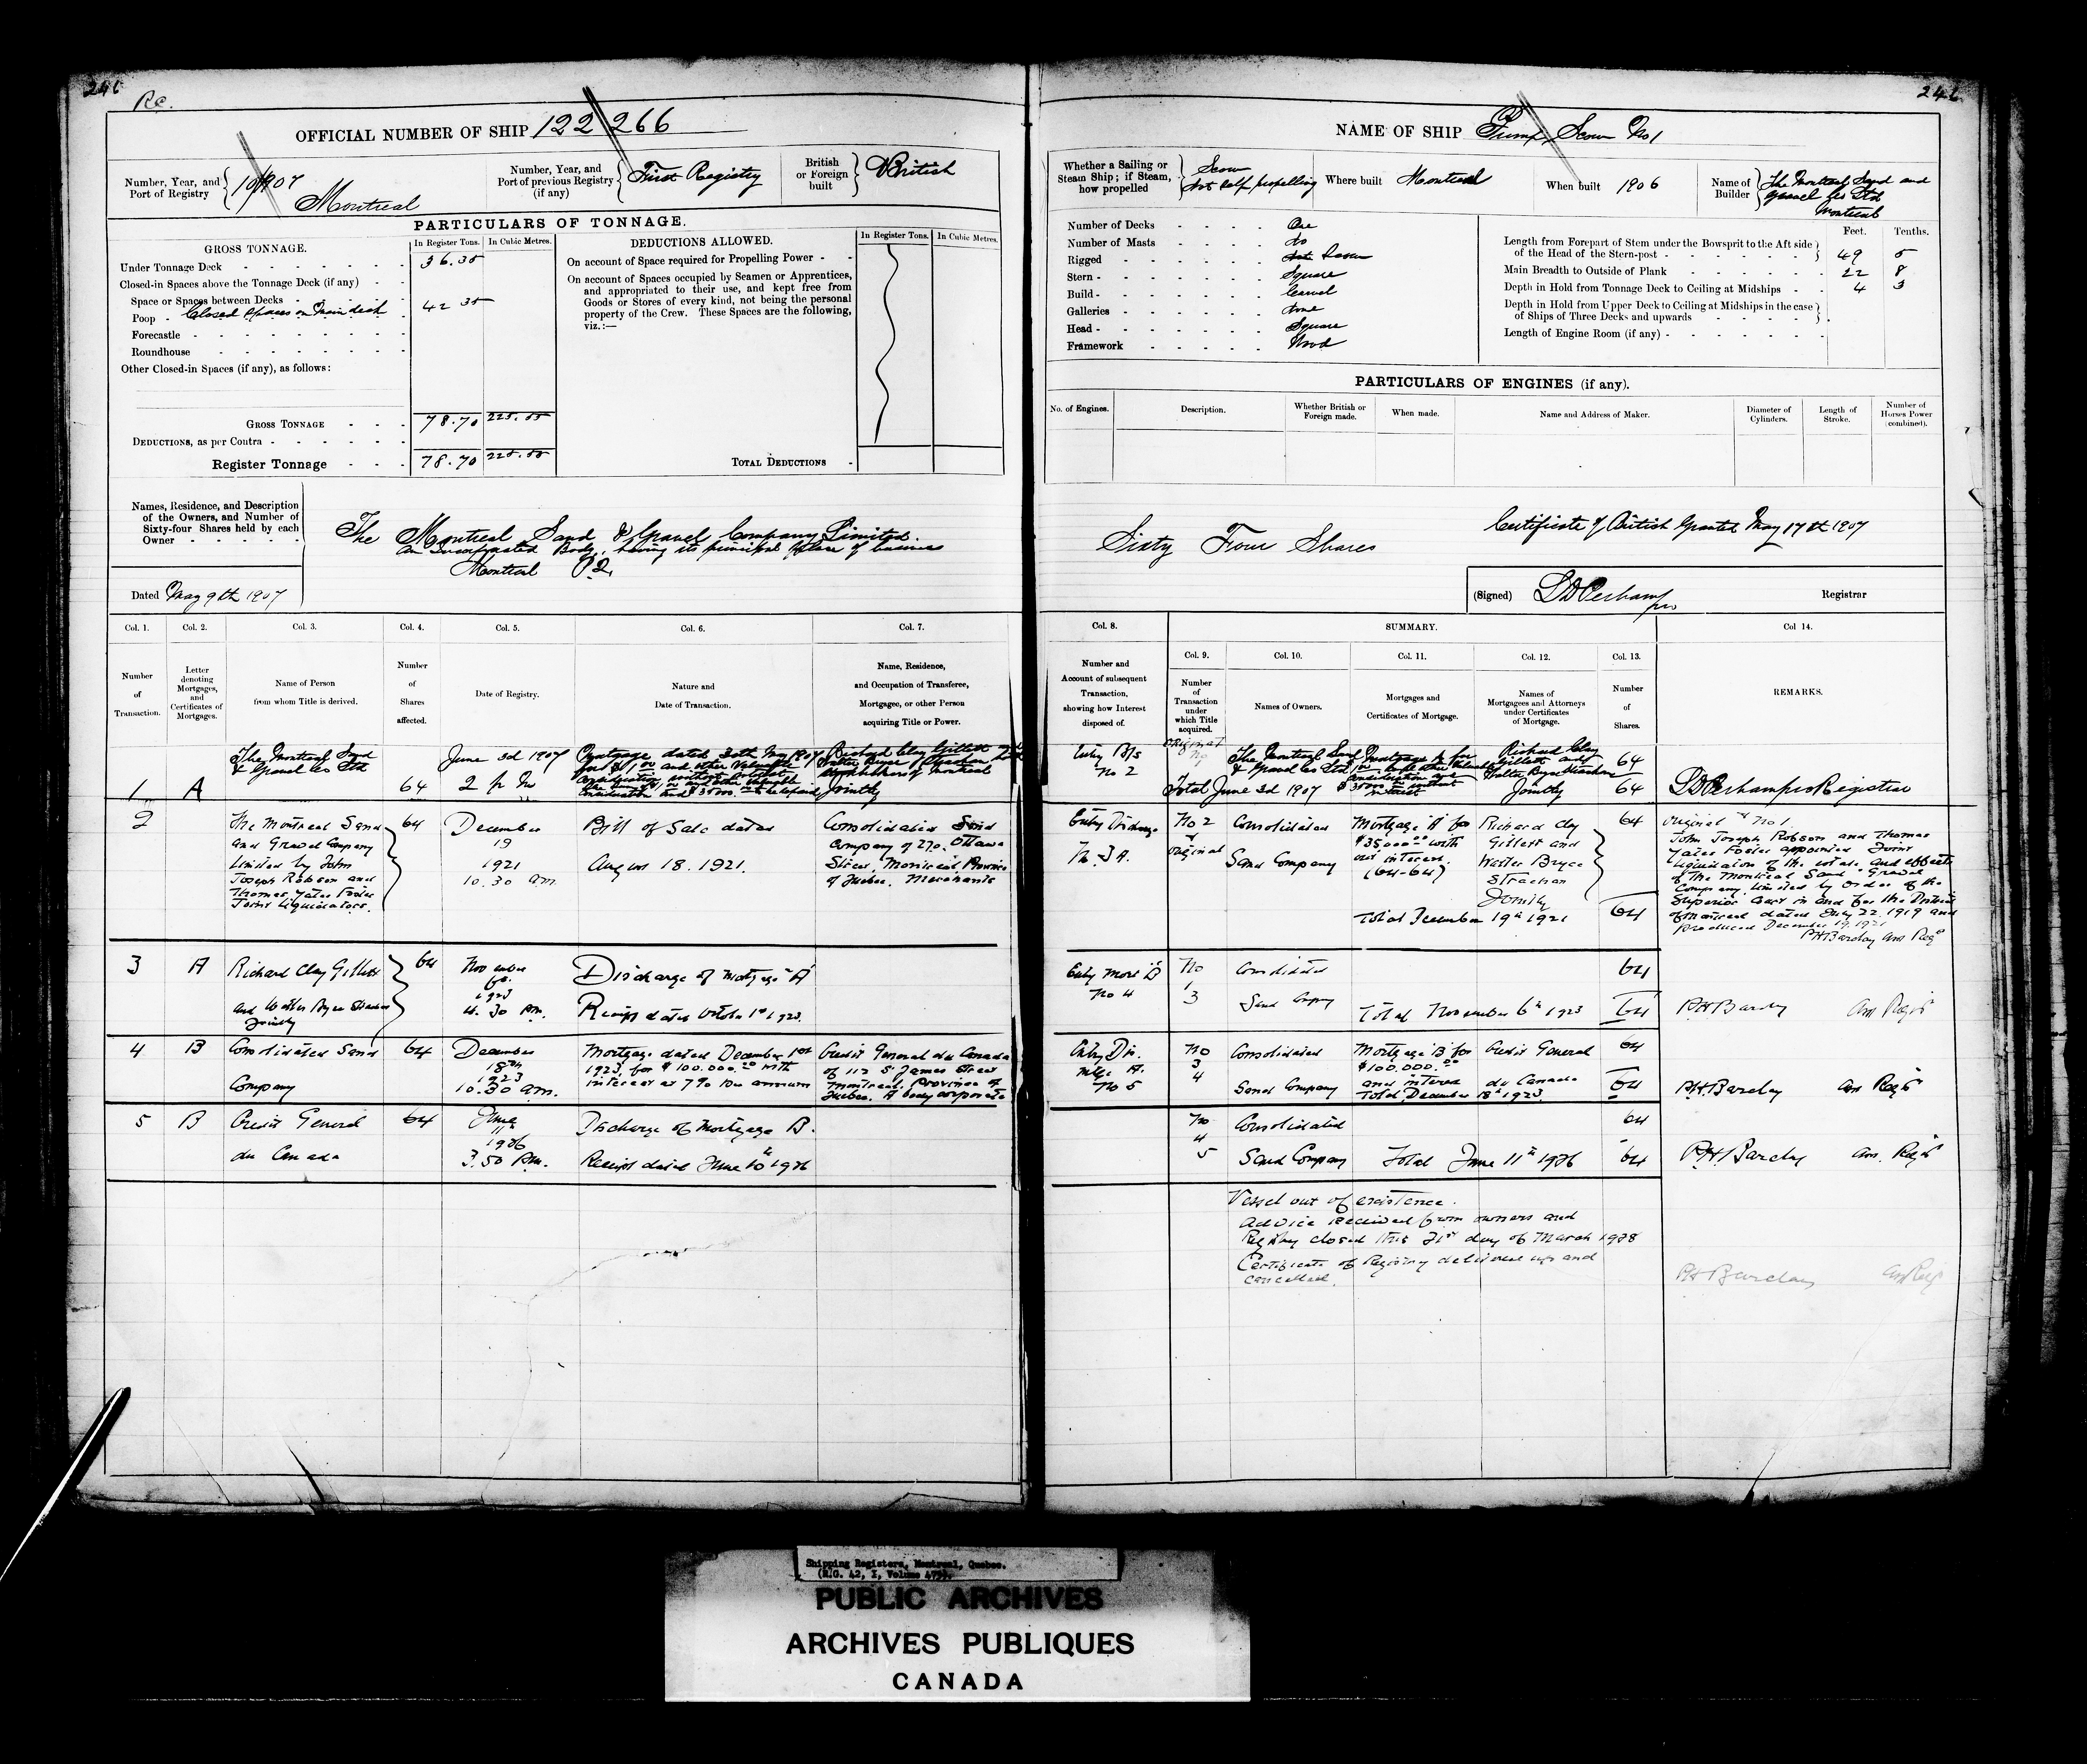 246
Re.
OFFICIAL NUMBER OF SHIP 122,266
Number, Year, and Port of Registry 10/1907 Montreal
Number, Year, and Port of previous Registry (if any) First Registry
British or Foreign built British
PARTICULARS OF TONNAGE.
GROSS TONNAGE.
In Register Tons. In Cubic Metres.
Under Tonnage Deck 36.35
Closed-in Spaces above the Tonnage Deck (if any)
Space or Spaces between Decks
Poop Closed Spaces on Main deck 42 35
Forecastle
Roundhouse
Other Closed-in Spaces (if any), as follows:
GROSS TONNAGE 78.70
DEDUCTIONS, as per Contra
Register Tonnage 78.70
DEDUCTIONS ALLOWED.
In Register Tons. In Cubic Metres.
On account of Space required for Propelling Power
On account of Spaces occupied by Seamen or Apprentices,
and appropriated to their use, and kept free from
Goods or Stores of every kind, not being the personal
property of the Crew. These Spaces are the following,
viz.:—
TOTAL DEDUCTIONS
Names, Residence, and Description
of the Owners, and Number of
Sixty-four Shares held by each
Owner
The Montreal Sand & Gravel Company Limited.
An Incorporated Body, having its principal place of business
Montreal P.Q.
Dated May 9th 1907
Col. 1. Col. 2. Col. 3. Col. 4. Col. 5. Col. 6. Col. 7.
Number of Transaction.
Letter denoting Mortgages, and Certificates of Mortgages.
Name of Person from whom Title is derived.
Number of Shares affected.
Date of Registry.
Nature and Date of Transaction.
Name, Residence, and Occupation of Transferee, Mortgagee, or other Person acquiring Title or Power.
1 A
The Montreal Sand
& Gravel Co Ltd
64
June 3d 1907
2 p m
Mortgage dated 30th May 1907
for $1.00 and other Valuable
consideration without interest
Richard Clay Gillett and
Walter Bryce Strachan
of Montreal
Jointly
2
The Montreal Sand
and Gravel Company
Limited by John
Joseph Robson and
Thomas Yates Foster
Joint Liquidators.
64
December
19
1921
10.30 am
Bill of Sale dated
August 18. 1921.
Consolidated Sand
Company of 270. Ottawa
Street, Montreal Province
of Quebec. Merchants
3 A
Richard Clay Gillett
and Walter Bryce Strachan
Jointly
64
November
6th
1923
4.30 Pm.
Discharge of Mortgage "A"
Receipt dated October 1st 1923.
4 B
Consolidated Sand
Company
64
December
18th
1923
10.30 am.
Mortgage dated December 1st
1923, for $100.000.00 with
interest at 7% per annum
Credit General du Canada
of 112 St James Street
Montreal. Province of
Quebec. A body corporate
5 B
Credit General
du Canada
64
June
11th
1926
3.50 Pm.
Discharge of Mortgage B.
Receipt dated June 10th 1926
246
NAME OF SHIP Pump Scow No 1
Whether a Sailing or Steam Ship; if Steam, how propelled Scow Not Self propelling
Where built Montreal
When built 1906
Name of Builder The Montreal Sand and Gravel Co Ltd Montreal
Number of Decks One
Number of Masts do
Rigged Scow
Stern Square
Build Carvel
Galleries None
Head Square
Framework Wood
Feet. Tenths.
Length from Forepart of Stem under the Bowsprit to the Aft side
of the Head of the Stern-post 49 5
Main Breadth to Outside of Plank 22 8
Depth in Hold from Tonnage Deck to Ceiling at Midships 4 3
Depth in Hold from Upper Deck to Ceiling at Midships in the case
of Ships of Three Decks and upwards
Length of Engine Room (if any)
PARTICULARS OF ENGINES (if any).
No. of Engines. Description. Whether British or Foreign made. When made. Name and Address of Maker. Diameter of Cylinders. Length of Stroke. Number of Horses Power (combined).
Sixty Four Shares
Certificate of British Granted May 17th 1907
(Signed) Registrar
Col. 8. SUMMARY. Col 14.
Col. 9. Col. 10. Col. 11. Col. 12. Col. 13.
Number and Account of subsequent Transaction, showing how Interest disposed of.
Number of Transaction under which Title acquired.
Names of Owners.
Mortgages and Certificates of Mortgage.
Names of Mortgagees and Attorneys under Certificates of Mortgage.
Number of Shares.
REMARKS.
Entry B/s
No 2
Original
The Montreal Sand
& Gravel Co Ltd
Richard Clay
Gillett and
Walter Bryce Strachan
Jointly
64
Total June 3d 1907
64
Registrar
Entry Discharge
No. 3 A.
No 2
Original
Consolidated
Sand Company
Mortgage "A" for
$35000.00 with
out interest.
(64-64)
Richard Clay
Gillett and
Walter Bryce
Strachan
Jointly
64
Total December 19th 1921 64
Original & No 1.
John Joseph Robson and Thomas
Yates Foster appointed Joint
Liquidators of the estate and effects
of The Montreal Sand & Gravel
Company, Limited by Order of the
Superior Court in and for the District
of Montreal dated July 22. 1919 and
produced December 19. 1921
P.H. Barclay Ass Regr
Entry Mort B
No 4
No
1
3
Consolidated
Sand Company
64
Total November 6th 1923 64
P.H. Barclay Ass Regr
Entry Dis.
No 5
No
3
4
Consolidated
Sand Company
Mortgage "B" for
$100.000.00
and interest
Credit General
du Canada
64
Total December 18th 1923 64
P.H. Barclay Ass Regr
No
4
5
Consolidated
Sand Company
64
Total June 11th 1926 64
P.H. Barclay Ass. Regr
Vessel out of existence.
Advice received from owners and
Registry closed this 31st day of March 1928
Certificate of Registry delivered up and
cancelled.
P.H. Barclay Ass Regr
Shipping Registers, Montreal, Quebec.
(R.G. 42, I, Volume
PUBLIC ARCHIVES
ARCHIVES PUBLIQUES
CANADA